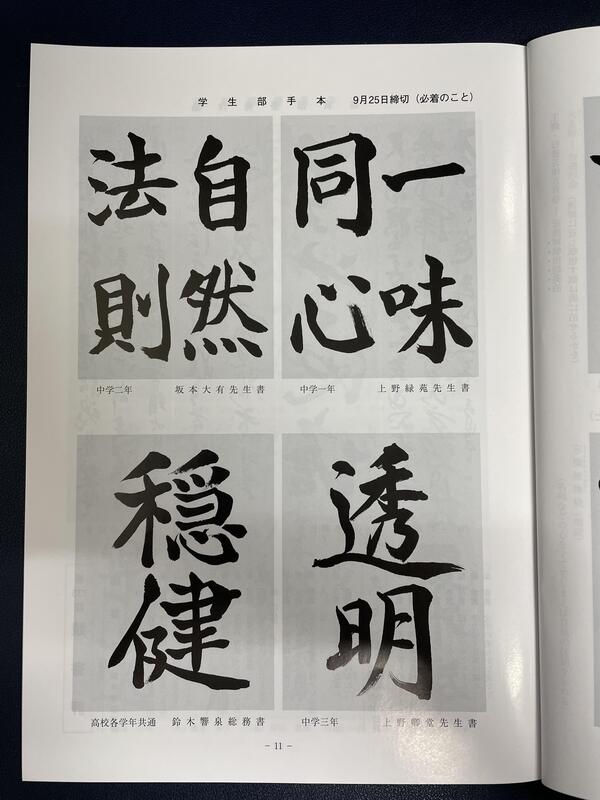 学生部手本 9月25日締切(必着のこと)
一味
同心
中学一年 上野緑苑先生書
自然
法則
中学二年 坂本大有先生書
透明
中学三年 上野卿堂先生書
穏健
高校各学年共通 鈴木響泉総務書
- 11 -